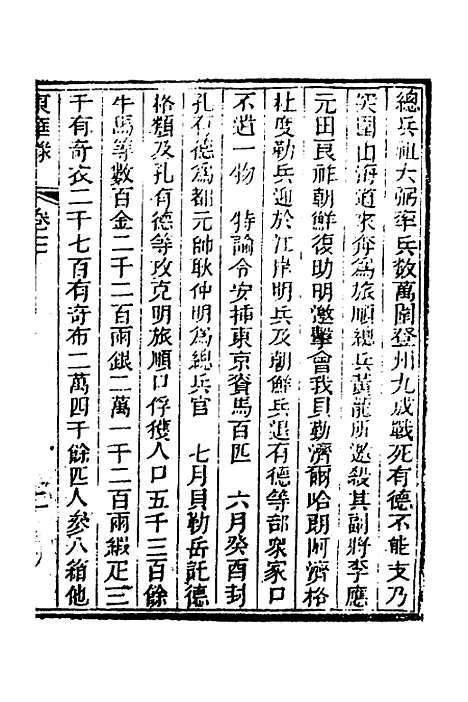 總兵祖大弼率兵數萬圍登州九成戰死有德不能支乃
突圍山海道來奔為旅順總兵黃龍所邀殺其副將李應
元田良祚朝鮮復助明邀擊會我貝勒濟爾哈朗阿濟格
杜度勒兵迎於江岸明兵及朝鮮兵退有德等部衆家口
不遺一物　特諭令安揷東京賚馬百匹　六月癸酉封
孔有德為都元帥耿仲明為總兵官　七月貝勒岳託德
格類及孔有德等攻克明旅順口俘獲人口五千三百餘
牛馬等數百金二千二百兩銀二萬一千二百兩緞疋三
千有奇衣二千七百有奇布二萬四千餘匹人參八箱他
東華錄
卷三